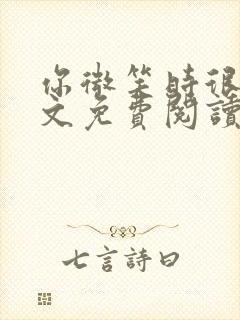 你微笑時很
文免費閱讀
七言詩曰